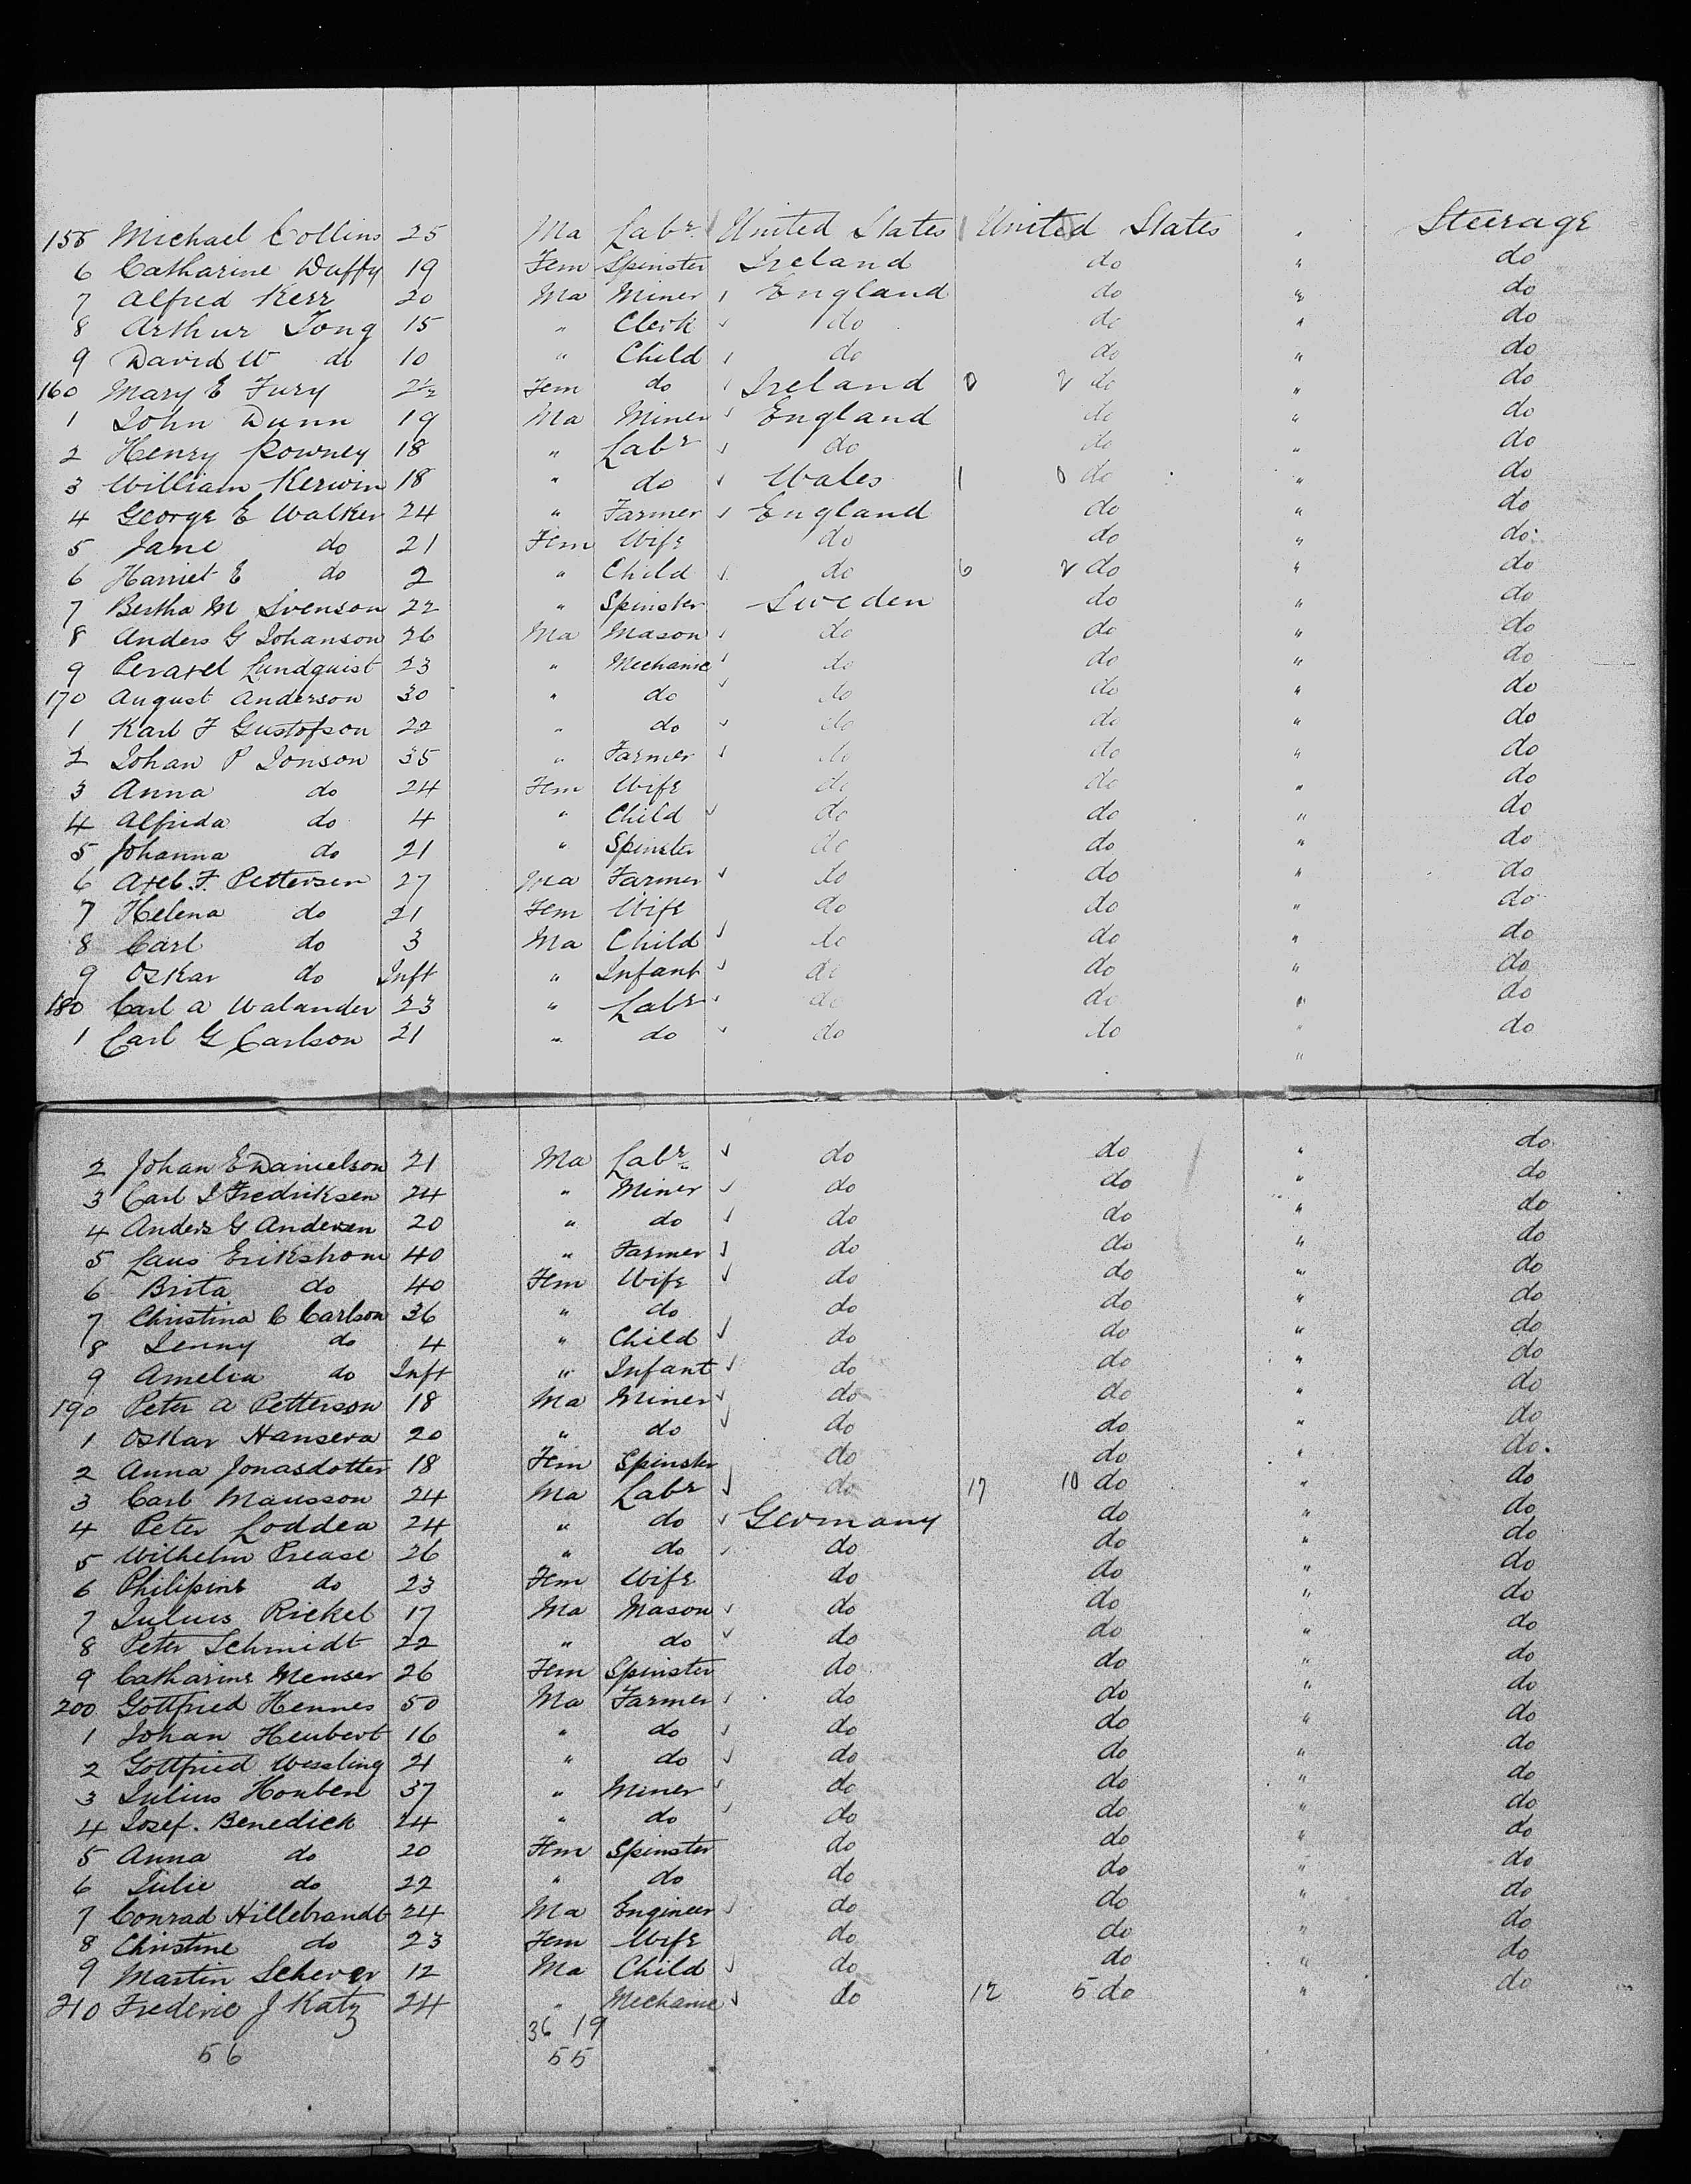 155 Michael Collins 25 Ma Labr United States United States " Steerage
6 Catharine Duffy 19 Fem Spinster Ireland do " do
7 Alfred Kerr 20 Ma Miner England do " do
8 Arthur Tong 15 " Clerk do do " do
9 David W do 10 " Child do do " do
160 Mary E Fury 2½ Fem do Ireland do " do
1 John Dunn 19 Ma Miner England do " do
2 Henry Rowney 18 " Labr do do " do
3 William Kerwin 18 " do Wales 1 0 do " do
4 George E Walker 24 " Farmer England do " do
5 Jane do 21 Fem Wife do do " do
6 Harriet E do 2 " Child do 6 2 do " do
7 Bertha M Svenson 22 " Spinster Sweden do " do
8 Anders G Johanson 26 Ma Mason do do " do
9 Lundquist 23 " Mechanic do do " do
170 August Anderson 30 " do do do " do
1 Karl F Gustofson 22 " do do do " do
2 Johan P Jonson 35 " Farmer do do " do
3 Anna do 24 Fem Wife do do " do
4 Alfrida do 4 " Child do do " do
5 Johanna do 21 " Spinster do do " do
6 Axel F. Pettersen 27 Ma Farmer do do " do
7 Helena do 21 Fem Wife do do " do
8 Carl do 3 Ma Child do do " do
9 Oskar do Inft " Infant do do " do
180 Carl A Walander 23 " Labr do do " do
1 Carl G Carlson 21 " do do do " do
"
2 Johan E Danielson 21 Ma Labr do do " do
3 Carl I Fredriksen 24 " Miner do do " do
4 Anders G Andersen 20 " do do do " do
5 Laus Erikshom 40 " Farmer do do " do
6 Brita do 40 Fem Wife do do " do
7 Christina C Carlson 36 " do do do " do
8 Jenny do 4 " Child do do " do
9 Amelia do Inft " Infant do do " do
190 Peter A Petterson 18 Ma Miner do do " do
1 Oskar Hansera 20 " do do do " do
2 Anna Jonasdotter 18 Fem Spinster do do " do.
3 Carl Mausson 24 Ma Labr do 17 10 do " do
4 Peter Loddea 24 " do Germany do " do
5 Wilhelm Prease 26 " do do do " do
6 Philipine do 23 Fem Wife do do " do
7 Julius Rickel 17 Ma Mason do do " do
8 Peter Schmidt 22 " do do do " do
9 Catharine Menser 26 Fem Spinster do do " do
200 Gottfried Hennes 50 Ma Farmer do do " do
1 Johan Heubert 16 " do do do " do
2 Gottfried Wessling 21 " do do do " do
3 Julius Houben 37 " Miner do do " do
4 Josef. Benedick 24 " do do do " do
5 Anna do 20 Fem Spinster do do " do
6 Julie do 22 " do do do " do
7 Conrad Hillebrandt 24 Ma Engineer do do " do
8 Christine do 23 Fem Wife do do " do
9 Martin Scherer 12 Ma Child do do " do
210 Frederic J Katz 24 " Mechanic do 12 5 do " do
36 19
56 55